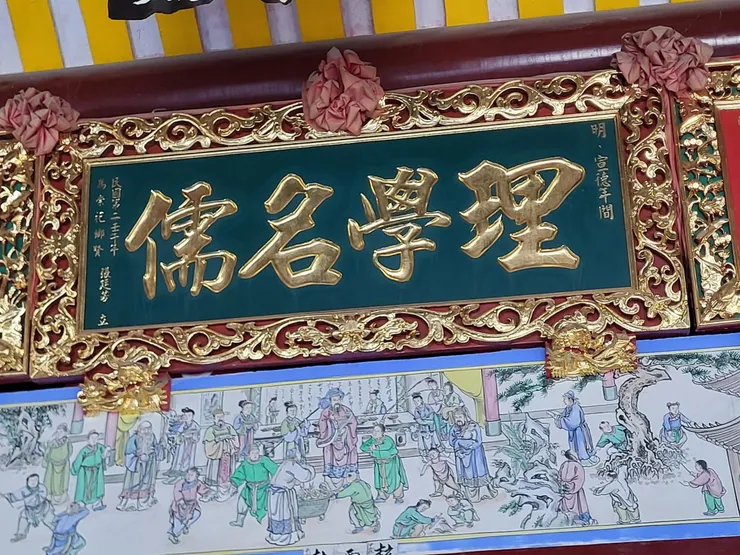 明·宣德年間
理學名儒
民國第二壬子年
為崇祀鄉賢 張廷芳 立